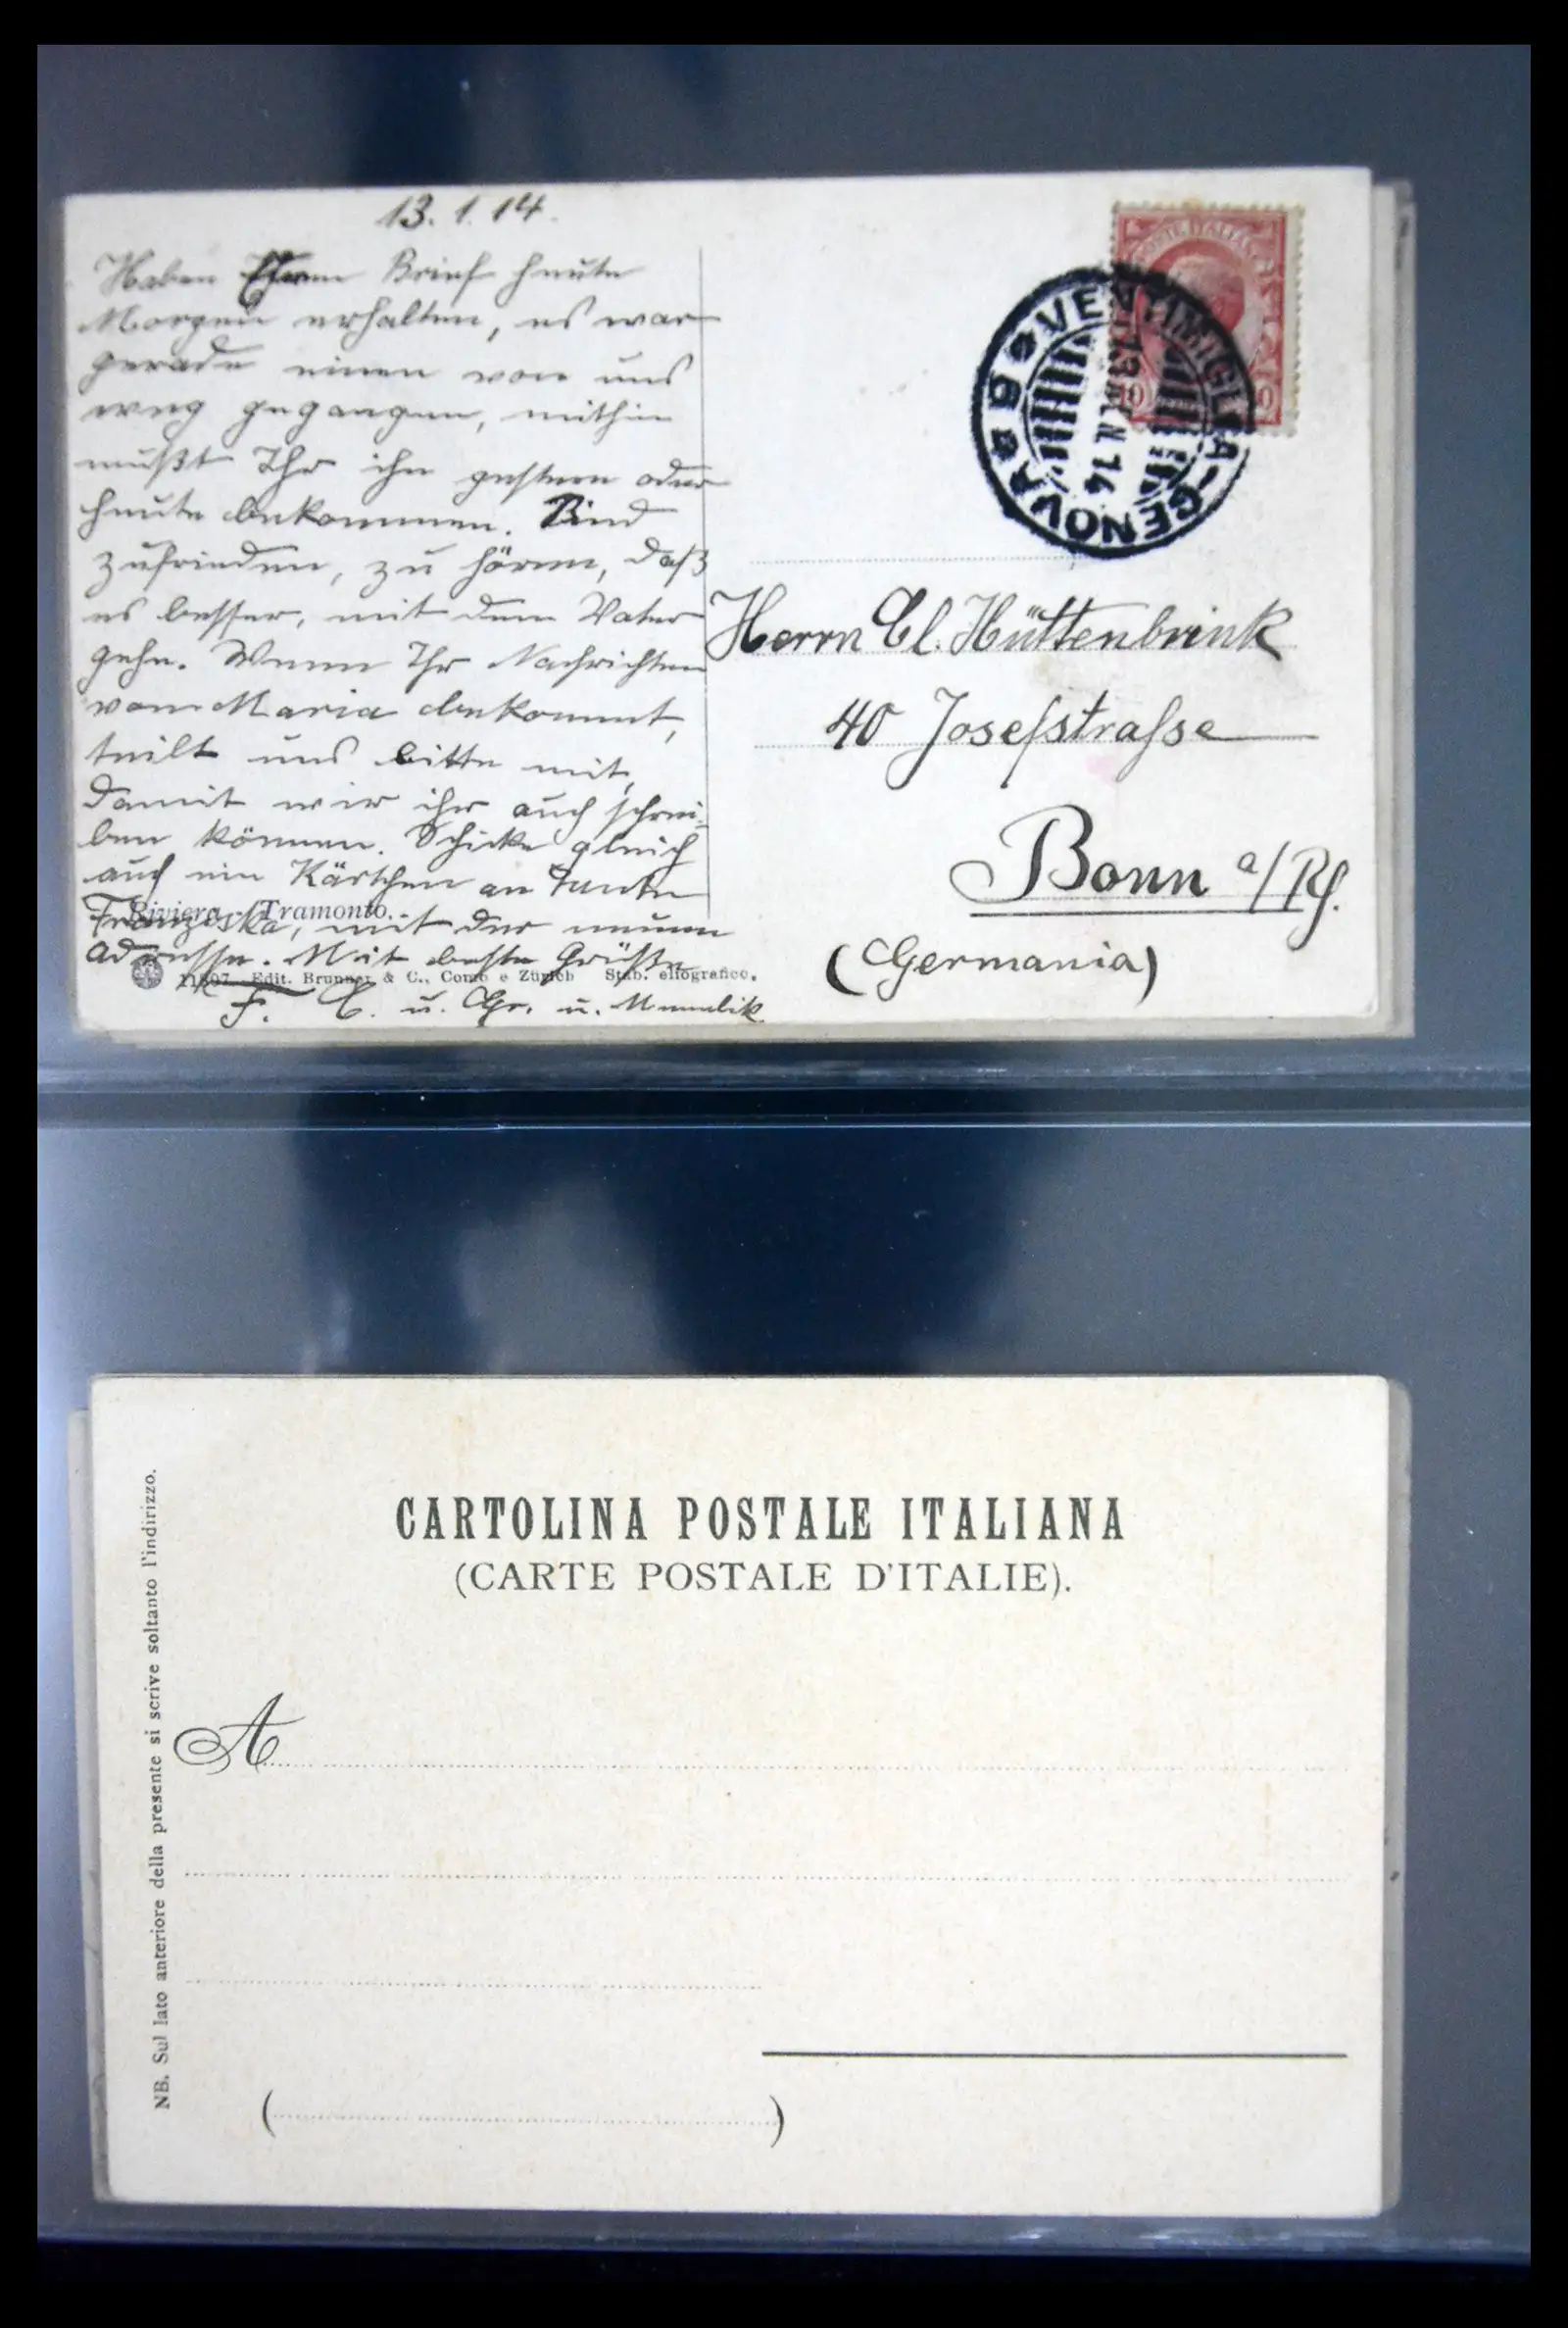 13. 1. 14.
Haben Ihren Brief heute
Morgen erhalten, es war
gerade einen von uns
weg gegangen, mithin
müßt Ihr ihn gestern oder
heute bekommen. Sind
zufrieden, zu hören, daß
es besser, mit dem Vater
gehe. Wenn Ihr Nachrichten
von Maria bekommt,
teilt uns bitte mit,
damit wir ihr auch schrei-
ben können. Schicke gleich
auch ein Kärtchen an Tante
Franziska, mit der neuen
Adresse. Mit beste Grüße
F. C. u. Gr. u.
Riviera - Tramonto.
11807 Edit. Brunner & C., Como e Zürich Stab. eliografico.
POSTE ITALIANE
10 10
VENTIMIGLIA-GENOVA
13 14
Herrn Cl. Hüttenbrink
40 Josefstrasse
Bonn a/Rh.
(Germania)
CARTOLINA POSTALE ITALIANA
(CARTE POSTALE D'ITALIE).
NB. Sul lato anteriore della presente si scrive soltanto l'indirizzo.
A
( )